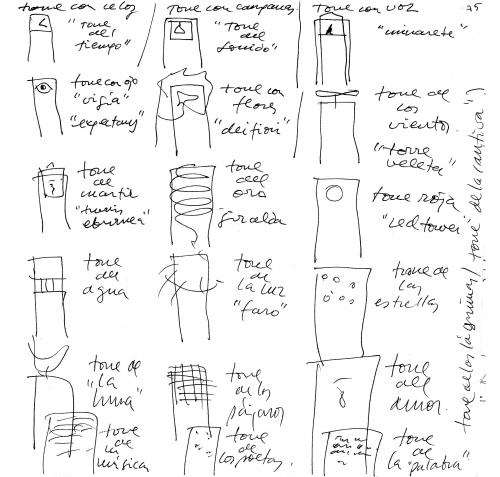 torre con reloj
"Torre
del
tiempo"
torre con campanas
"Torre
del
sonido"
torre con voz
"minarete"
25
torre con ojo
"vigía"
torre con
flores
torre de
los
vientos
"torre
veleta"
torre
de
martir
"turris
eburnea"
torre
del
oro
giralda
torre roja
"red tower"
torre
del
agua
torre
de
la luz
"faro"
torre de
las
estrellas
torre de
"la
luna"
torre
de los
pájaros
torre
del
amor
torre
de
la
música
torre
de
los poetas
torre
de
la "palabra"
torre de las lágrimas / torre de la cautiva